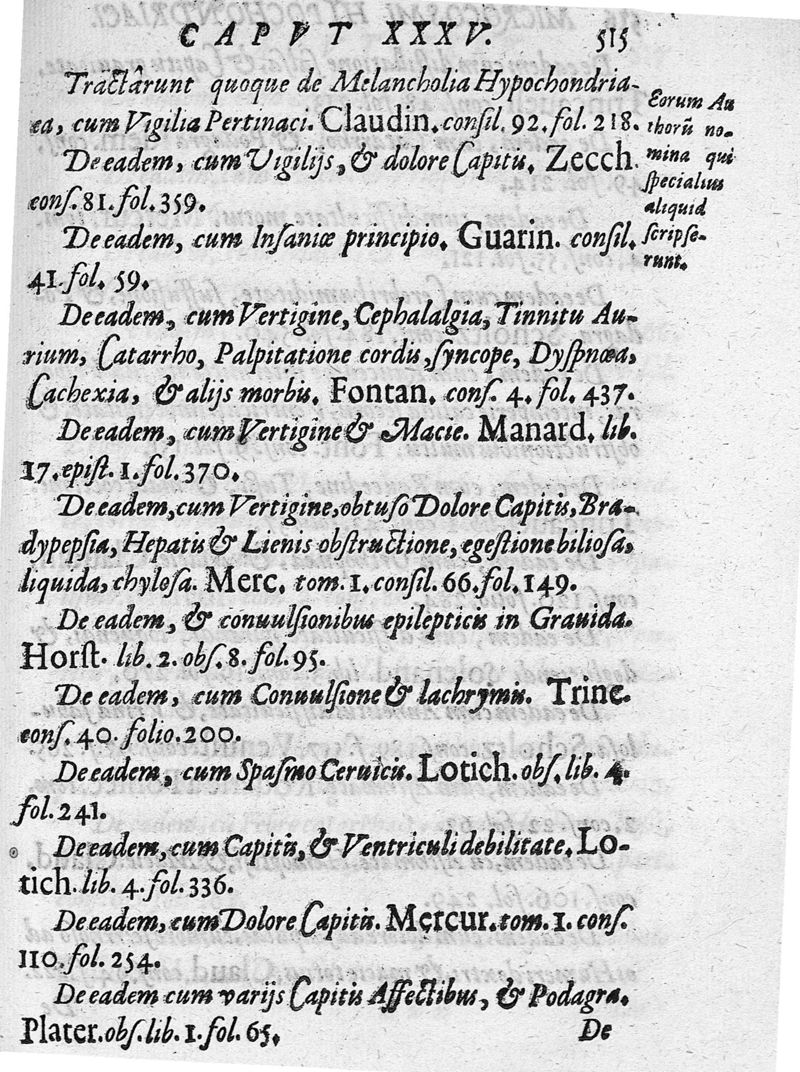 CAPVT XXXV. 515
Tractârunt quoque de Melancholia Hypochondria-
ca, cum Vigilia Pertinaci. Claudin. consil. 92. fol. 218.
De eadem, cum Vigilijs, & dolore Capitis, Zecch.
cons. 81. fol. 359.
De eadem, cum Insaniæ principio, Guarin. consil.
41. fol. 59.
De eadem, cum Vertigine, Cephalalgia, Tinnitu Au-
rium, Catarrho, Palpitatione cordis, syncope, Dyspnœa,
Cachexia, & alijs morbis, Fontan. cons. 4. fol. 437.
De eadem, cum Vertigine & Macie. Manard. lib.
17. epist. 1. fol. 370.
De eadem, cum Vertigine, obtuso Dolore Capitis, Bra-
dypepsia, Hepatis & Lienis obstructione, egestione biliosa,
liquida, chylosa. Merc. tom. 1. consil. 66. fol. 149.
De eadem, & conuulsionibus epilepticis in Grauida.
Horst. lib. 2. obs. 8. fol. 95.
De eadem, cum Conuulsione & lachrymis. Trinc.
cons. 40. folio. 200.
De eadem, cum Spasmo Ceruicis. Lotich. obs. lib. 4.
fol. 241.
De eadem, cum Capitis, & Ventriculi debilitate, Lo-
tich. lib. 4. fol. 336.
De eadem, cum Dolore Capitis. Mercur. tom. 1. cons.
110. fol. 254.
De eadem cum varijs Capitis Affectibus, & Podagra.
Plater. obs. lib. 1. fol. 65.
De
Eorum Au
thorū no-
mina qui
specialius
aliquid
scripse-
runt.